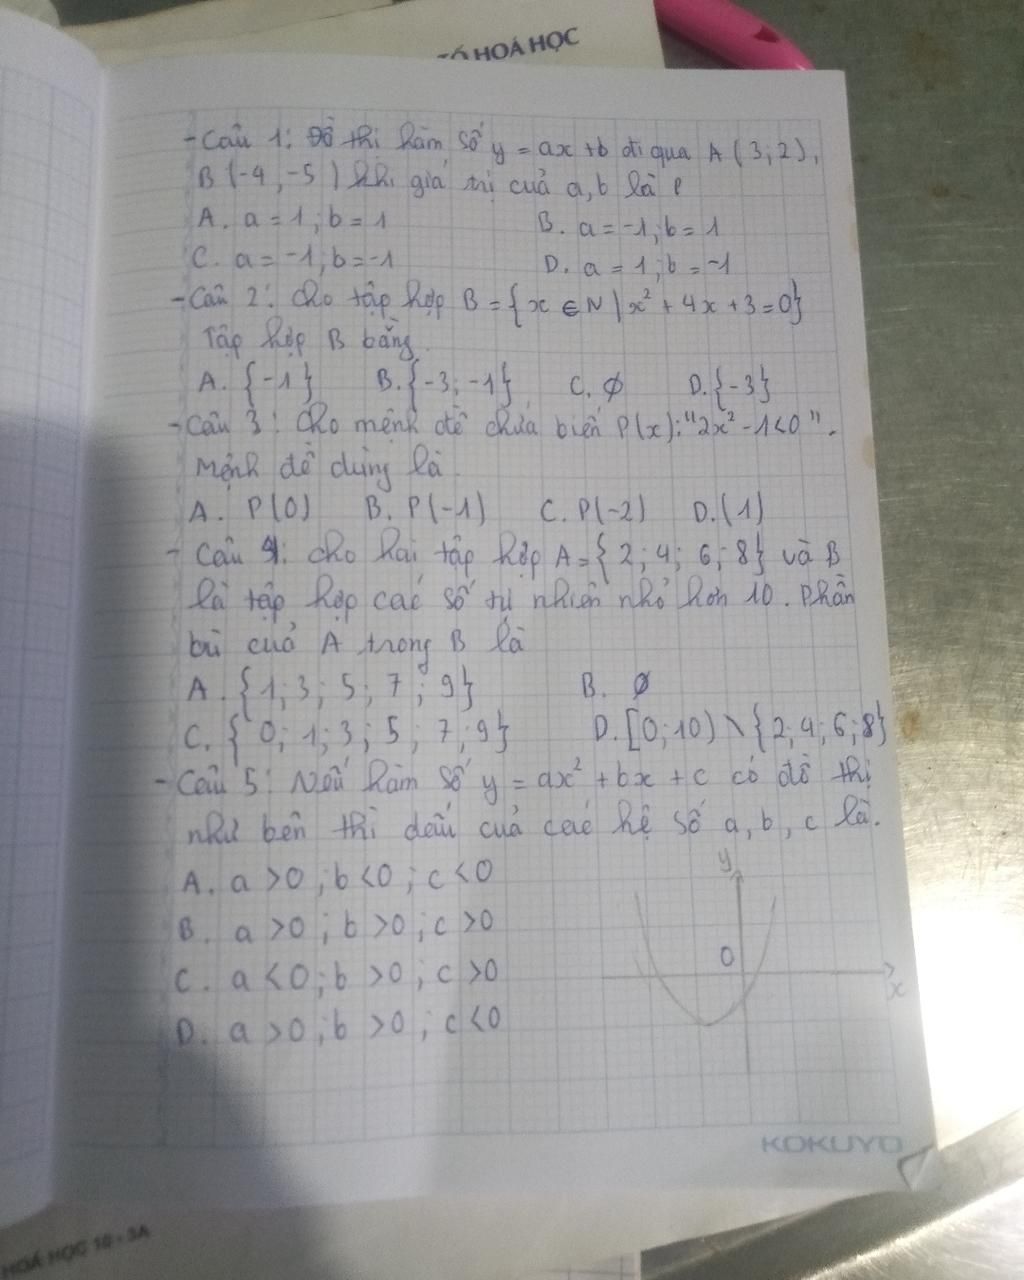 TỐ HOÁ HỌC
- Câu 1: Đồ thị hàm số y = ax + b đi qua A (3; 2),
B (-4, -5) khi giá trị của a, b là
A. a = 1; b = 1 B. a = -1; b = 1
C. a = -1; b = -1 D. a = 1; b = -1
- Câu 2: Cho tập hợp B = {x ∈ N | x² + 4x + 3 = 0}
Tập hợp B bằng.
A. {-1} B. {-3; -1} C. ∅ D. {-3}
- Câu 3: Cho mệnh đề chứa biến P(x): "2x² - 1 < 0".
Mệnh đề đúng là.
A. P(0) B. P(-1) C. P(-2) D. (1)
- Câu 4: Cho hai tập hợp A = {2; 4; 6; 8} và B
là tập hợp các số tự nhiên nhỏ hơn 10. Phần
bù của A trong B là
A. {1; 3; 5; 7; 9} B. ∅
C. {0; 1; 3; 5; 7; 9} D. [0; 10) \ {2; 4; 6; 8}
- Câu 5: Nếu hàm số y = ax² + bx + c có đồ thị
như bên thì dấu của các hệ số a, b, c là.
A. a > 0; b < 0; c < 0
B. a > 0; b > 0; c > 0
C. a < 0; b > 0; c > 0
D. a > 0; b > 0; c < 0
y
O
x
KOKUYO
HOÁ HỌC 10 - 3A